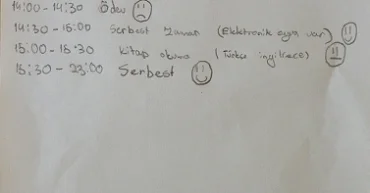 14:00-14:30 Ödev
14:30-15:00 Serbest Zaman (Elektronik eşya var)
15:00-15:30 kitap okuma (Türkçe ingilizce)
15:30-23:00 Serbest